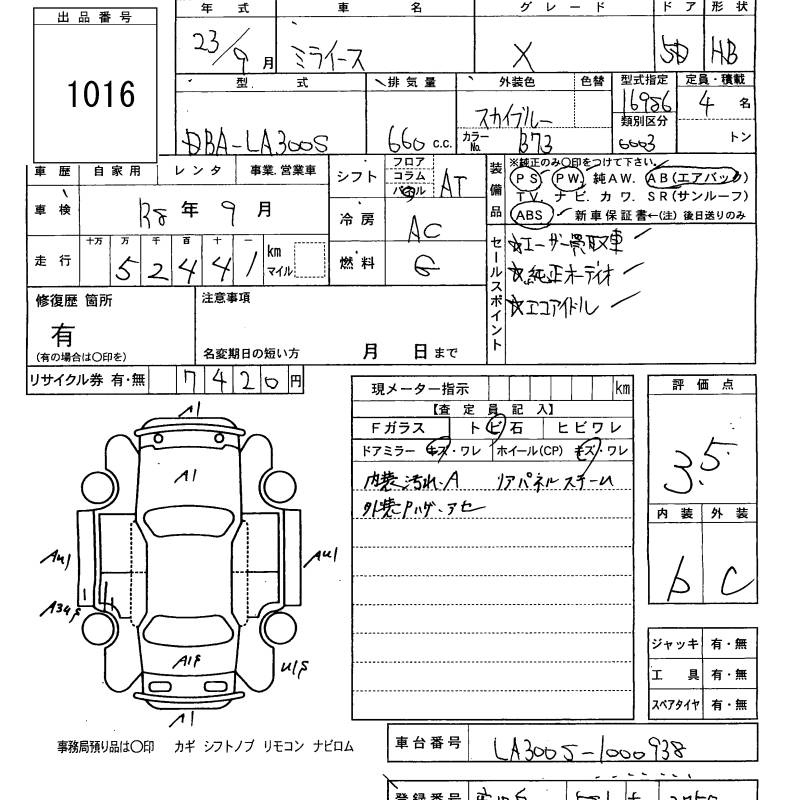 出品番号
1016
年式 車名 グレード ドア 形状
23/9月 ミライース X 5D HB
型式 排気量 外装色 色替 型式指定 定員・積載
DBA-LA300S 660 c.c. スカイブルー 16986 4名
カラーNo. B73 類別区分 6003 トン
車歴 自家用 レンタ 事業.営業車
車検 R8年9月
走行 十万 万 千 百 十 一 km マイル
52441
シフト フロア コラム パネル AT
冷房 AC
燃料 G
装備品 ※純正のみ○印をつけて下さい.
PS PW 純AW. AB(エアバック)
TV.ナビ.カワ.SR(サンルーフ)
ABS 新車保証書←(注)後日送りのみ
セールスポイント
☆ユーザー買取車
☆純正オーディオ
☆エコアイドル
修復歴 箇所
有
(有の場合は○印を)
注意事項
名変期日の短い方 月 日まで
リサイクル券 有・無 7420円
現メーター指示 km
【査定員記入】
Fガラス トビ石 ヒビワレ
ドアミラー キズ・ワレ ホイール(CP) キズ・ワレ
内装汚れ.A リアパネルスチーム
外装Pハゲ.アセ
評価点
3.5
内装 外装
b C
A1
A1
AU1 AU1
A1
ジャッキ 有・無
工具 有・無
スペアタイヤ 有・無
事務局預り品は○印 カギ シフトノブ リモコン ナビロム
車台番号 LA300S-1000938
登録番号